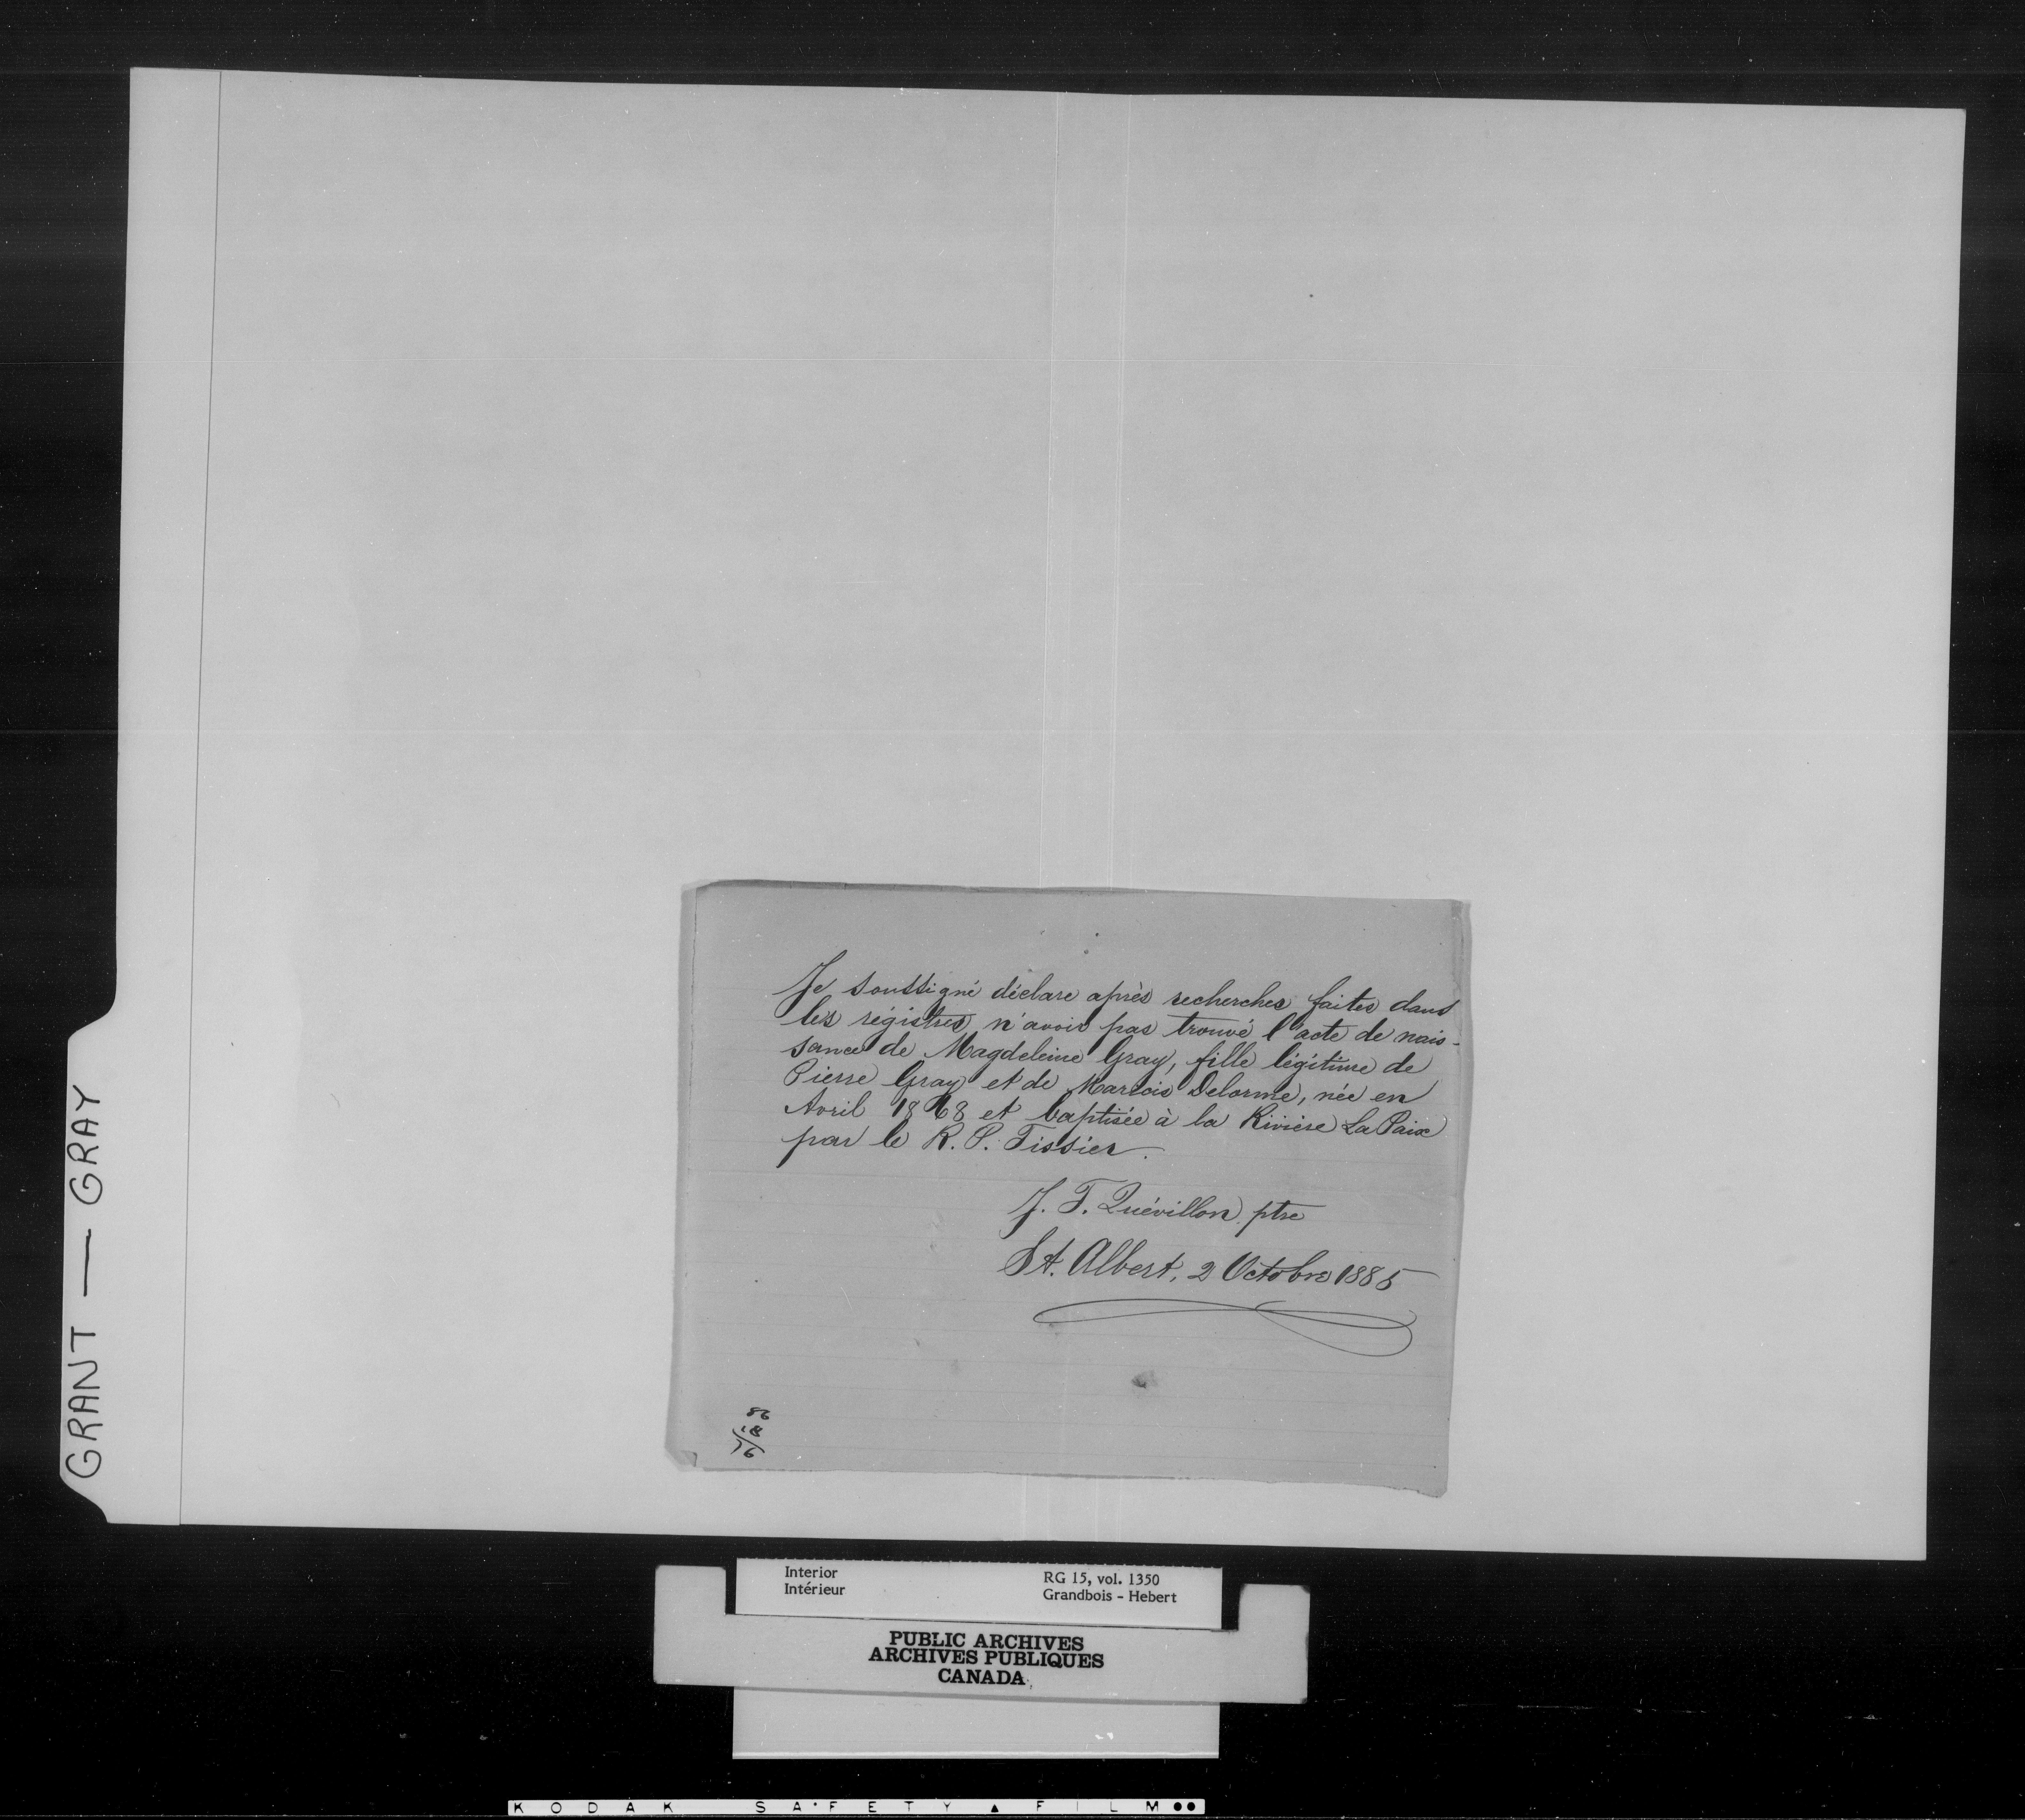 Je soussigné déclare après recherches faites dans
les régistres, n'avoir pas trouvé l'acte de nais-
sance de Magdeleine Gray, fille légitime de
Pierre Gray et de Delorme, née en
Avril 1868 et baptisée à la Rivière La Paix
par le R. P. Tissier.
J. F. Quévillon ptre
St. Albert, 2 Octobre 1885
GRANT — GRAY
Interior
Intérieur
RG 15, vol. 1350
Grandbois - Hebert
PUBLIC ARCHIVES
ARCHIVES PUBLIQUES
CANADA
KODAK SAFETY FILM